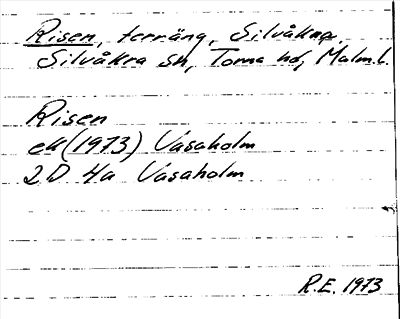 Risen, terräng, Silvåkra,
Silvåkra sn, Torna hd, Malm.l.
Risen
ek (1973) Vasaholm
2D 4a Vasaholm
R.E. 1973